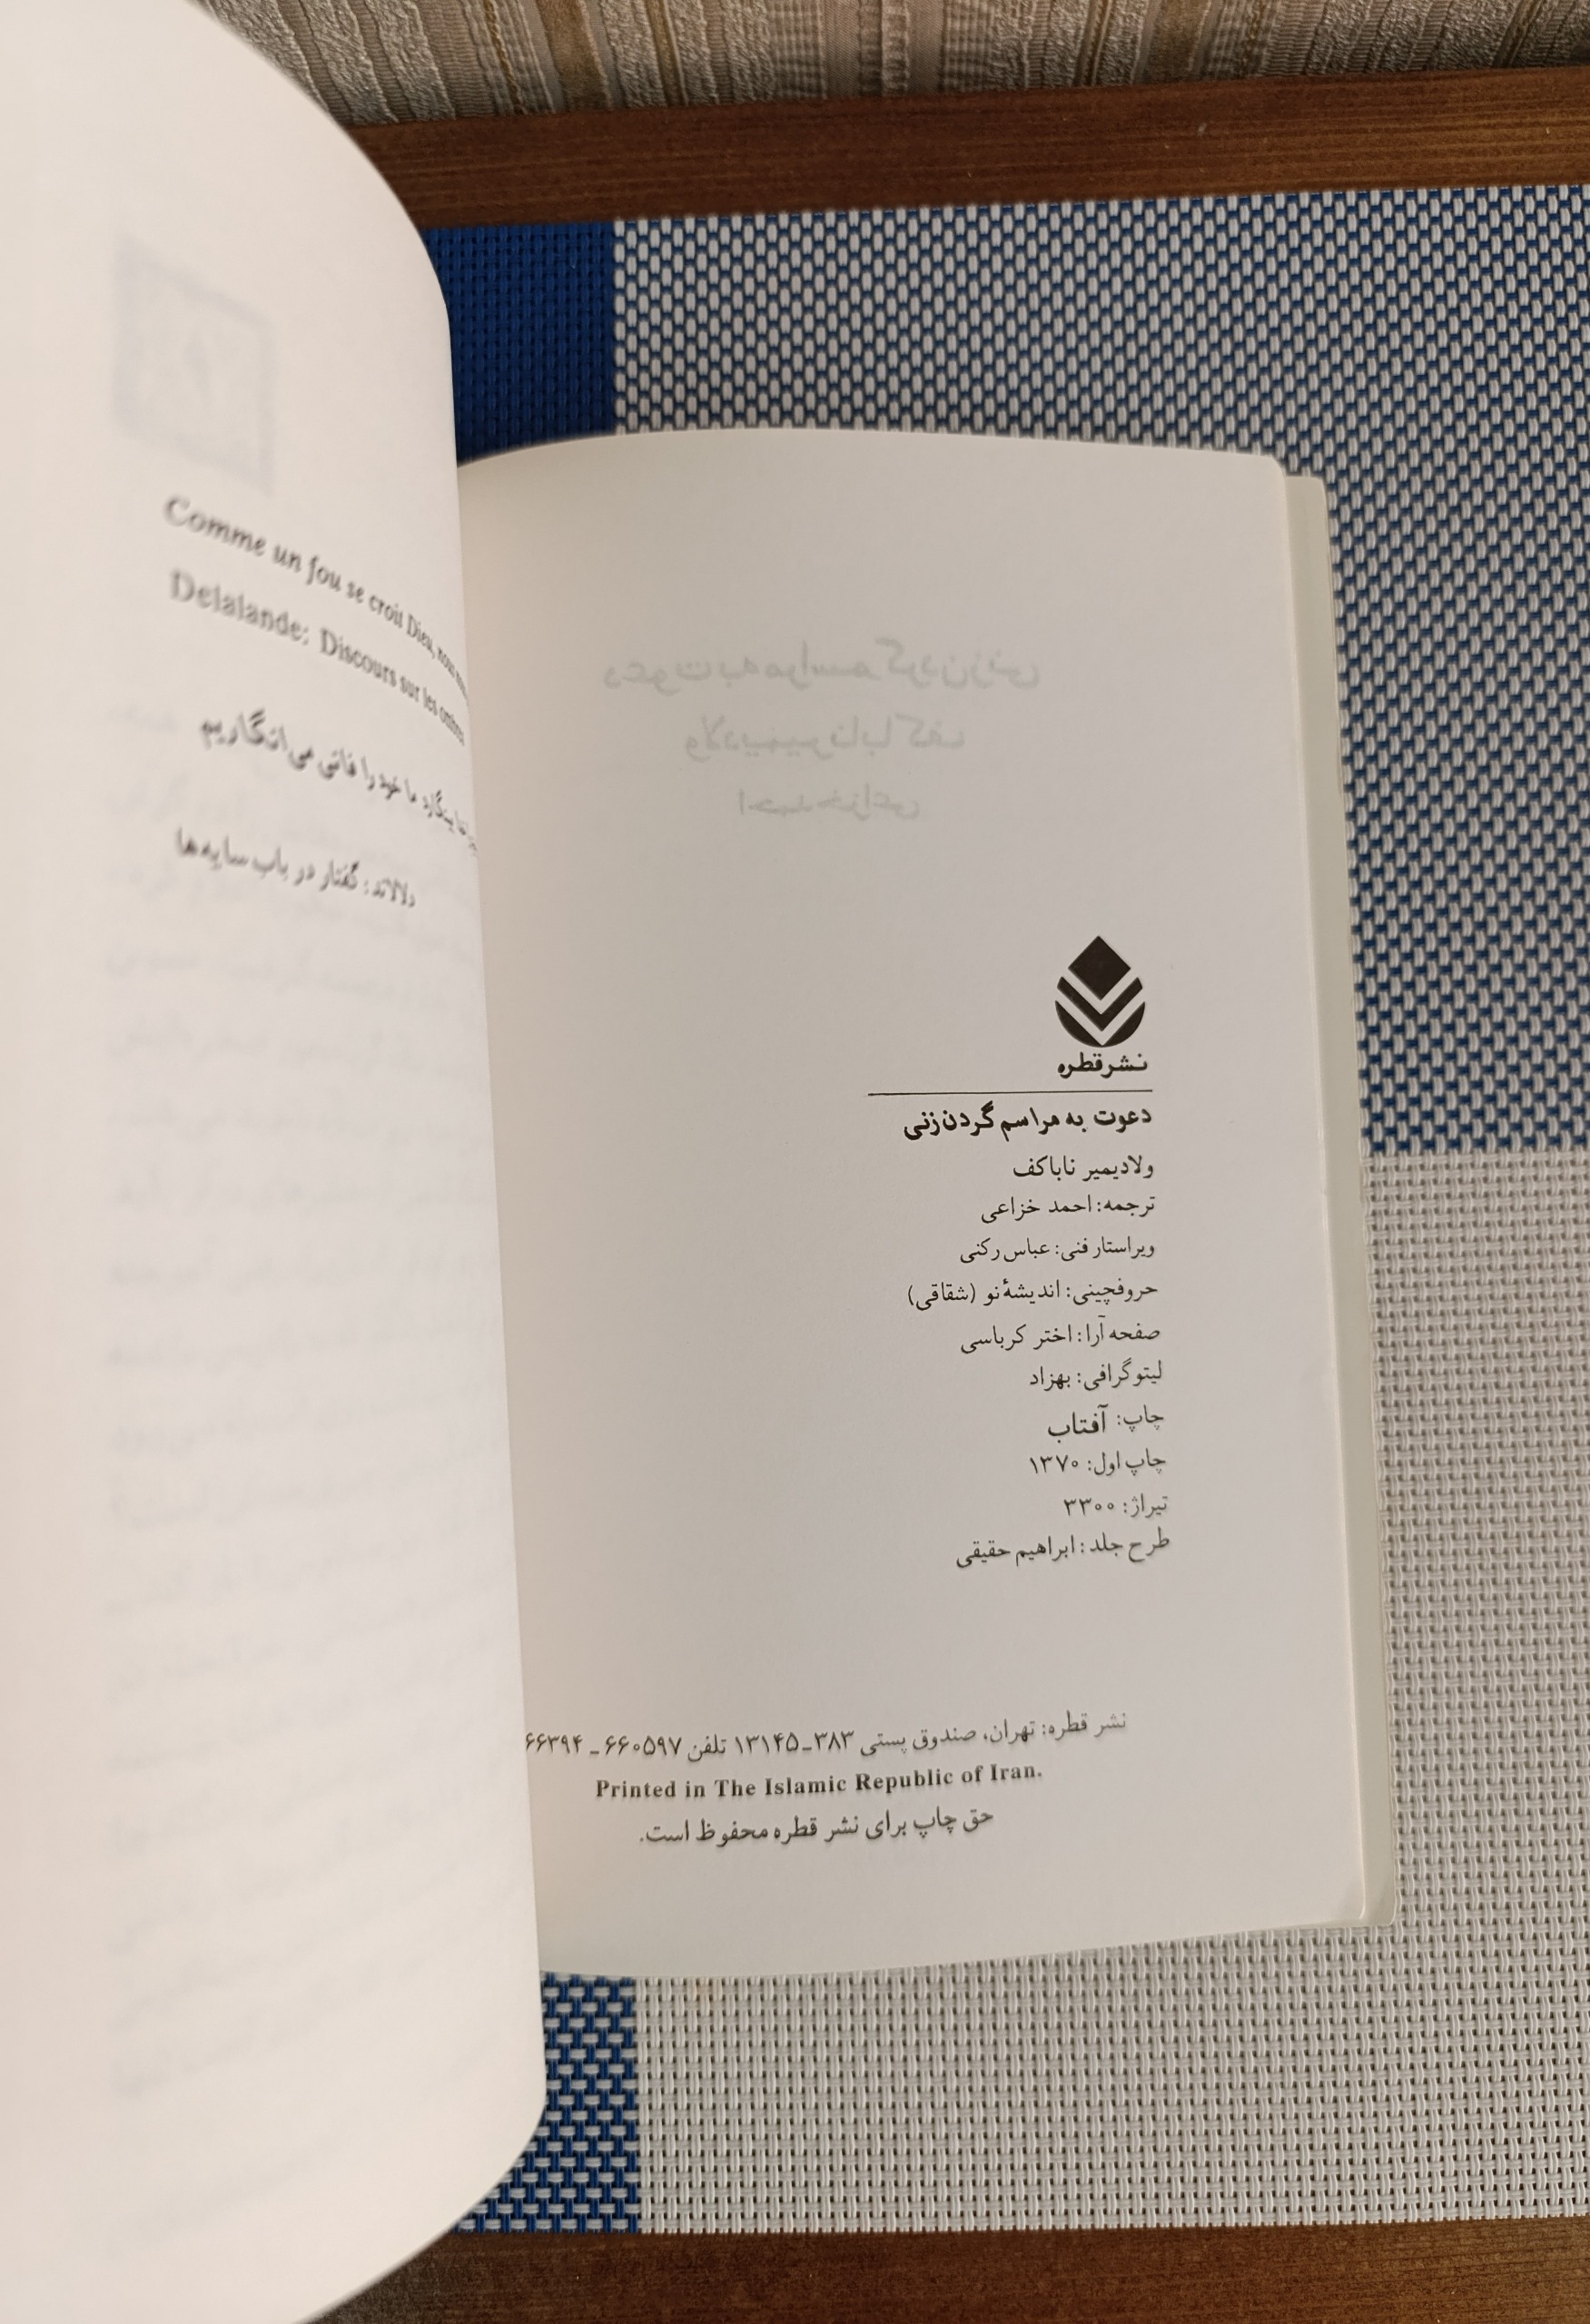 نشر قطره
دعوت به مراسم گردن‌زنی
ولادیمیر ناباکف
ترجمه: احمد خزاعی
ویراستار فنی: عباس رکنی
حروفچینی: اندیشهٔ نو (شقاقی)
صفحه آرا: اختر کرباسی
لیتوگرافی: بهزاد
چاپ: آفتاب
چاپ اول: ۱۳۷۰
تیراژ: ۳۳۰۰
طرح جلد: ابراهیم حقیقی
نشر قطره: تهران، صندوق پستی ۳۸۳ـ۱۳۱۴۵ تلفن ۶۶۰۵۹۷ ـ ۶۶۳۹۴
Printed in The Islamic Republic of Iran.
حق چاپ برای نشر قطره محفوظ است.
Comme un fou se croit Dieu, nous
Delalande: Discours sur les ombres
ما خود را فانی می‌انگاریم
دلالاند: گفتار در باب سایه‌ها
دعوت به مراسم گردن‌زنی
ولادیمیر ناباکف
احمد خزاعی